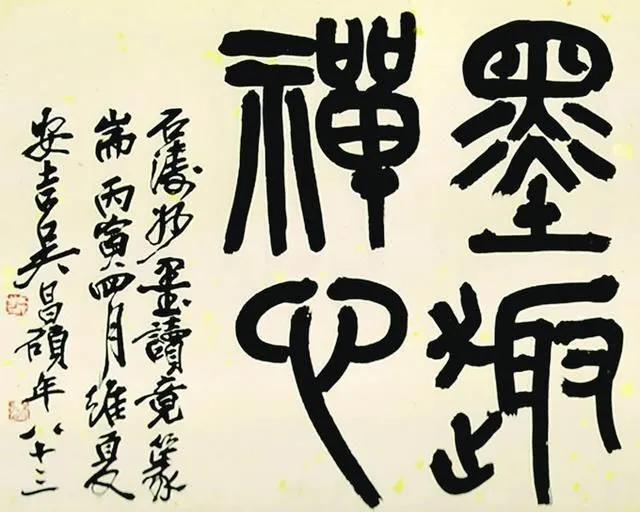 墨趣
禪心
石濤妙墨讀竟篆
耑丙寅四月維夏
安吉吳昌碩年八十三